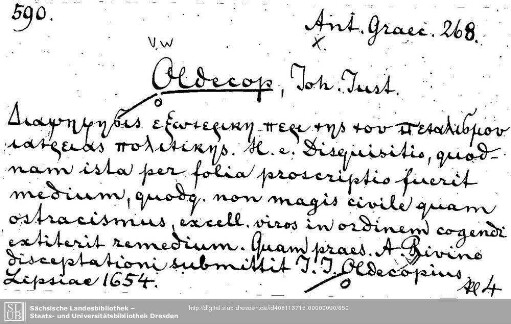 590.
Ant. Graec. 268.
Oldecop, Joh. Just.
Διαψηφησις εξωτερικη περι της του πεταλισμου
ιατρειας πολιτικης. H. e. Disquisitio, quod-
nam ista per folia proscriptio fuerit
medium, quodq. non magis civile quam
ostracismus, excell. viros in ordinem cogendi
extiterit remedium. Quam praes. A. Rivino
disceptationi submittit J. J. Oldecopius
Lipsiae 1654.
4
Sächsische Landesbibliothek –
Staats- und Universitätsbibliothek Dresden